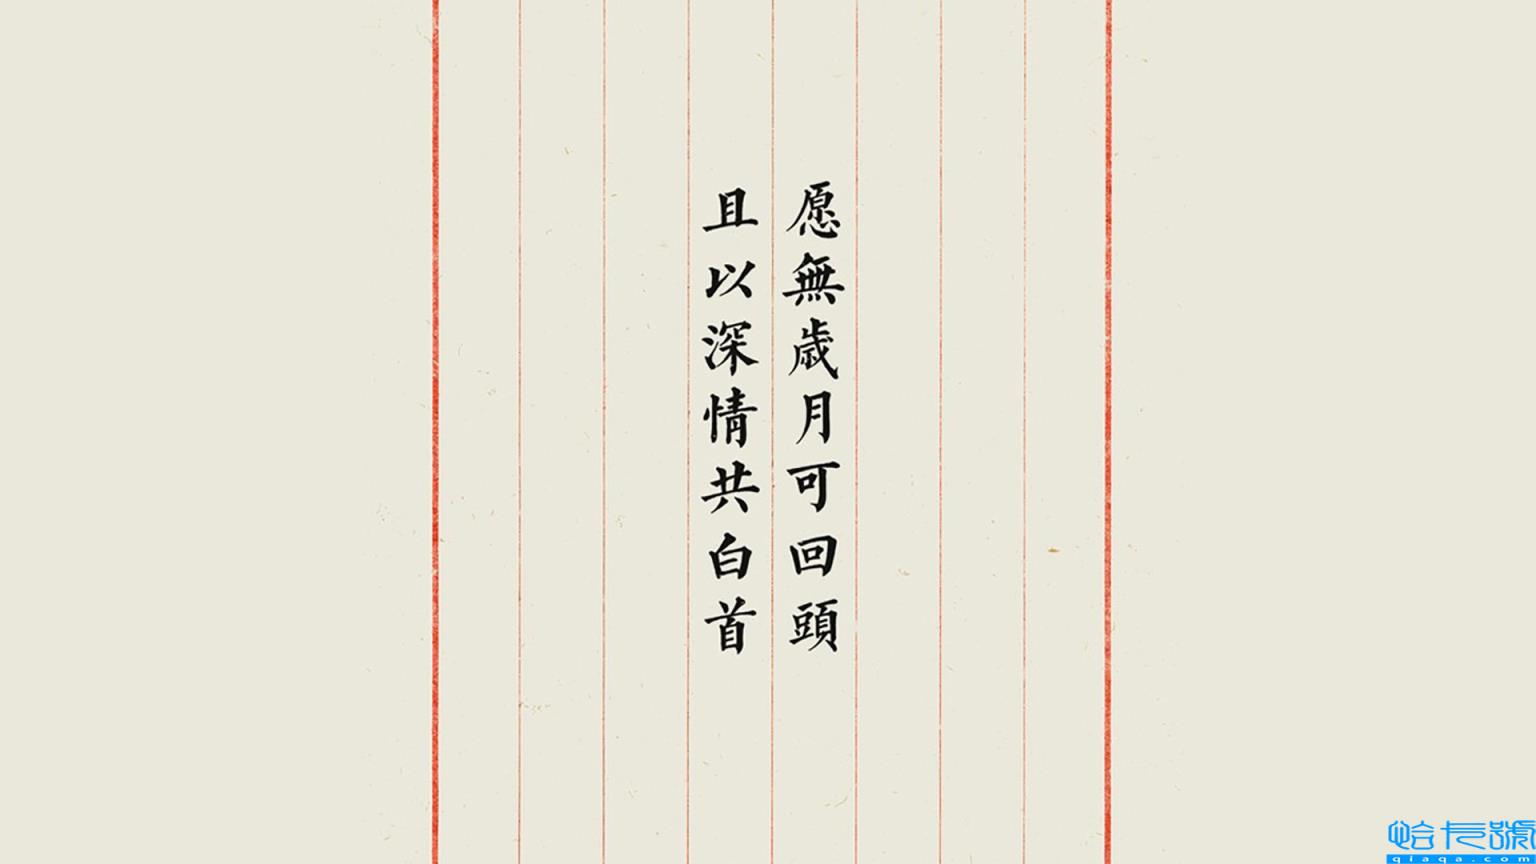 愿無歳月可回頭
且以深情共白首
qiaqa.com